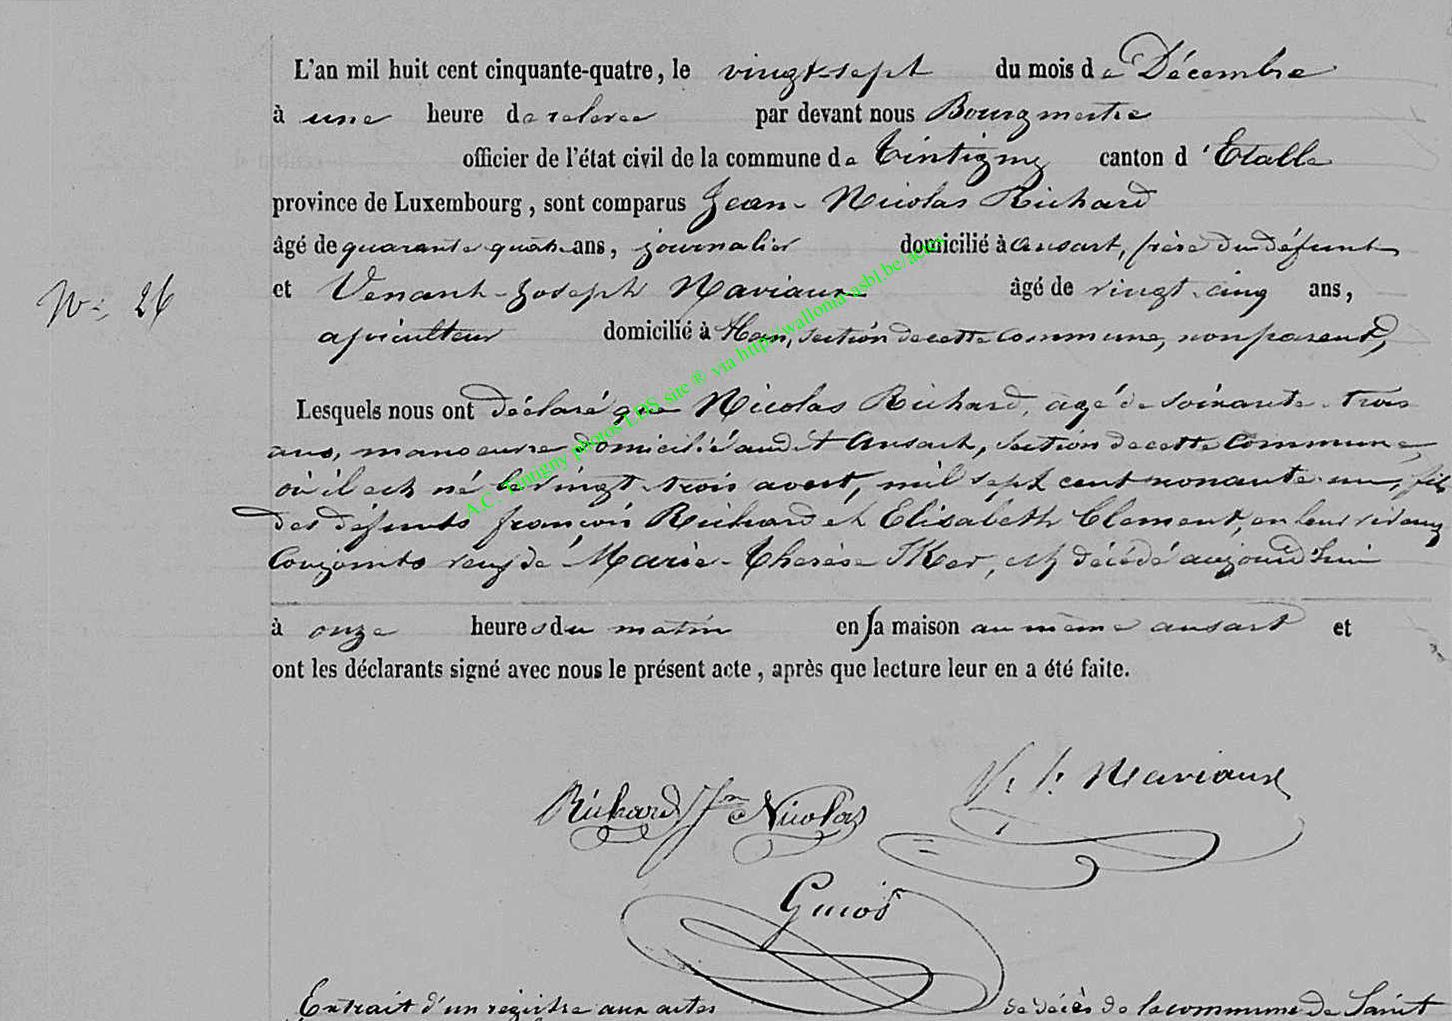 L'an mil huit cent cinquante-quatre, le vingt-sept du mois de Décembre
à une heure de relevée par devant nous Bourgmestre
officier de l'état civil de la commune de Tintigny canton d'Etalle
province de Luxembourg, sont comparus Jean-Nicolas Richard
âgé de quarante quatre ans, journalier domicilié à ansart, frère du défunt
et Venant-Joseph Naviaux âgé de vingt-cinq ans,
N° 26
domicilié à Han, section de cette commune, non parent,
Lesquels nous ont déclaré que Nicolas Richard, agé de soixante-trois
ans, manoeuvre domicilié audit ansart, section de cette commune,
où il est né le vingt-trois avout, mil sept cent nonante-un, fils
des défunts françois Richard et Elisabeth Clement, en leur vivant
Conjoints veuf de Marie-Therèse, est décédé aujourd'hui
à onze heures du matin en sa maison au même ansart et
ont les déclarants signé avec nous le présent acte, après que lecture leur en a été faite.
Richard Jn Nicolas
V. J. Naviaux
Extrait d'un régistre aux actes de décès de la commune de Saint
A.C. Tintigny photos LDS site ® via http://wallonia-asbl.be/actes